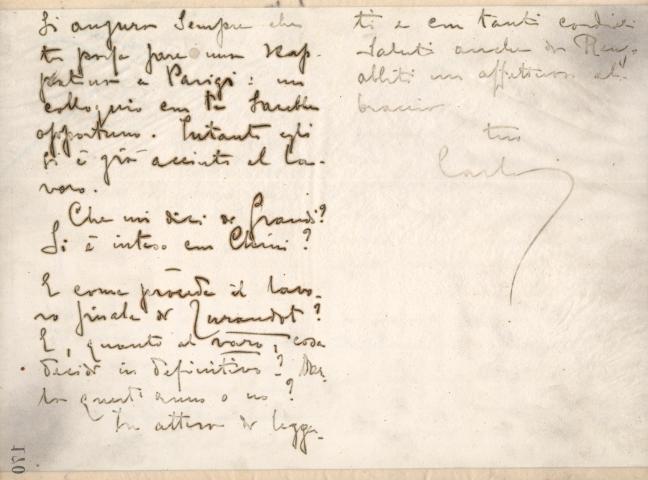 Si augura sempre che
tu possa fare una scap-
patina a Parigi: un
colloquio con te sarebbe
opportuno. Intanto egli
si è già accinto al la-
voro.
Che mi dici di Grandi?
Si è inteso con Clausi?
E come procede il lavo-
ro finale di Turandot?
E, quanto al varo, cosa
decidi in definitivo? Da-
rla quest'anno o no?
In attesa di legger-
ti e con tanti cordiali
saluti anche da Reny,
abbiti un affettuoso ab-
braccio.
tuo
Carlo
170